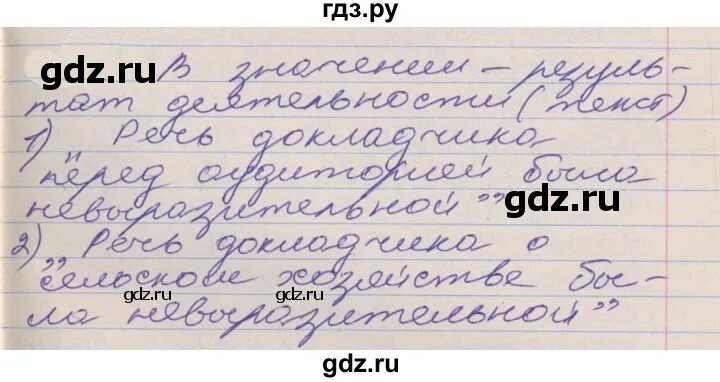 гдз.ру
В значении – резуль-
тат деятельности (текст)
1) „Речь докладчика
перед аудиторией была
невыразительной”
2) „Речь докладчика о
сельском хозяйстве бы-
ла невыразительной”
gdz.ru
gdz.ru
gdz.ru
gdz.ru
gdz.ru
gdz.ru
gdz.ru